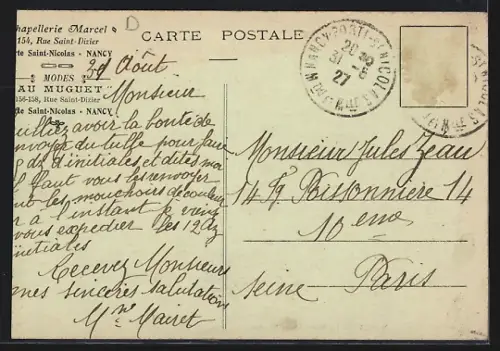 Chapellerie Marcel
154, Rue Saint-Dizier
rte Saint-Nicolas - NANCY
MODES
AU MUGUET
156-158, Rue Saint-Dizier
lle Saint-Nicolas - NANCY
D
CARTE POSTALE
NANCY PORTE ST NICOLAS
20
31 - 8
27
Mthe et Mlle
ST NICOLAS
31 Août
Monsieur
avoir la bonté de
du tulle pour faire
dz d'initiales et dites moi
il faut vous les renvoyer
les mouchoirs de couleur
à l'instant je viens
vous expédier les 12 dz
initiales
Recevez Monsieur
mes sincères salutations
Mme Mairet
Monsieur Jules Zeau
14 Fg Poissonnière 14
10 eme
Paris
Seine